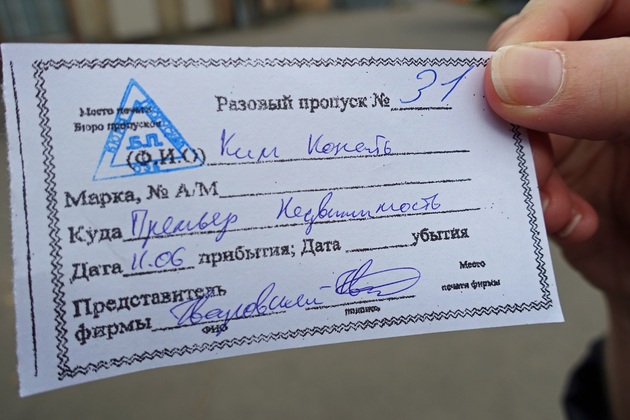 Разовый пропуск № 31
Место печати
Бюро пропусков
Б.П.
(Ф.И.О) Ким
Марка, № А/М
Куда Премьер Недвижимость
Дата 11.06 прибытия; Дата убытия
Представитель
фирмы
ФИО
подпись
Место
печати фирмы